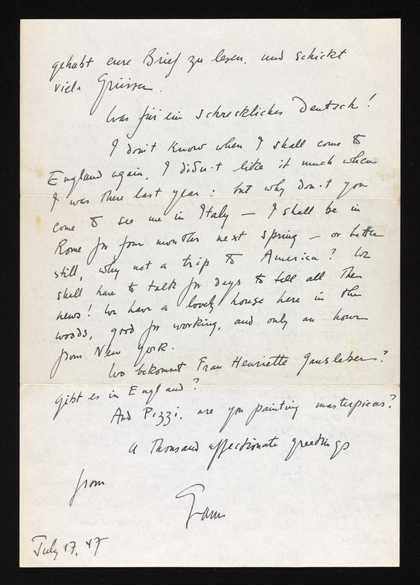 gehabt eure Brief zu lesen, und schickt
viele Grüssen.
Was für ein schreckliches Deutsch!
I don't know when I shall come to
England again. I didn't like it much when
I was there last year: but why don't you
come to see me in Italy — I shall be in
Rome for four months next spring — or better
still, why not a trip to America? We
shall have to talk for days to tell all the
news! We have a lovely house here in the
woods, good for working, and only an hour
from New York.
Wo bekommt Frau Henriette
gibt es in England?
And Pizzi, are you painting masterpieces?
A Thousand affectionate greetings
from
July 17, 47